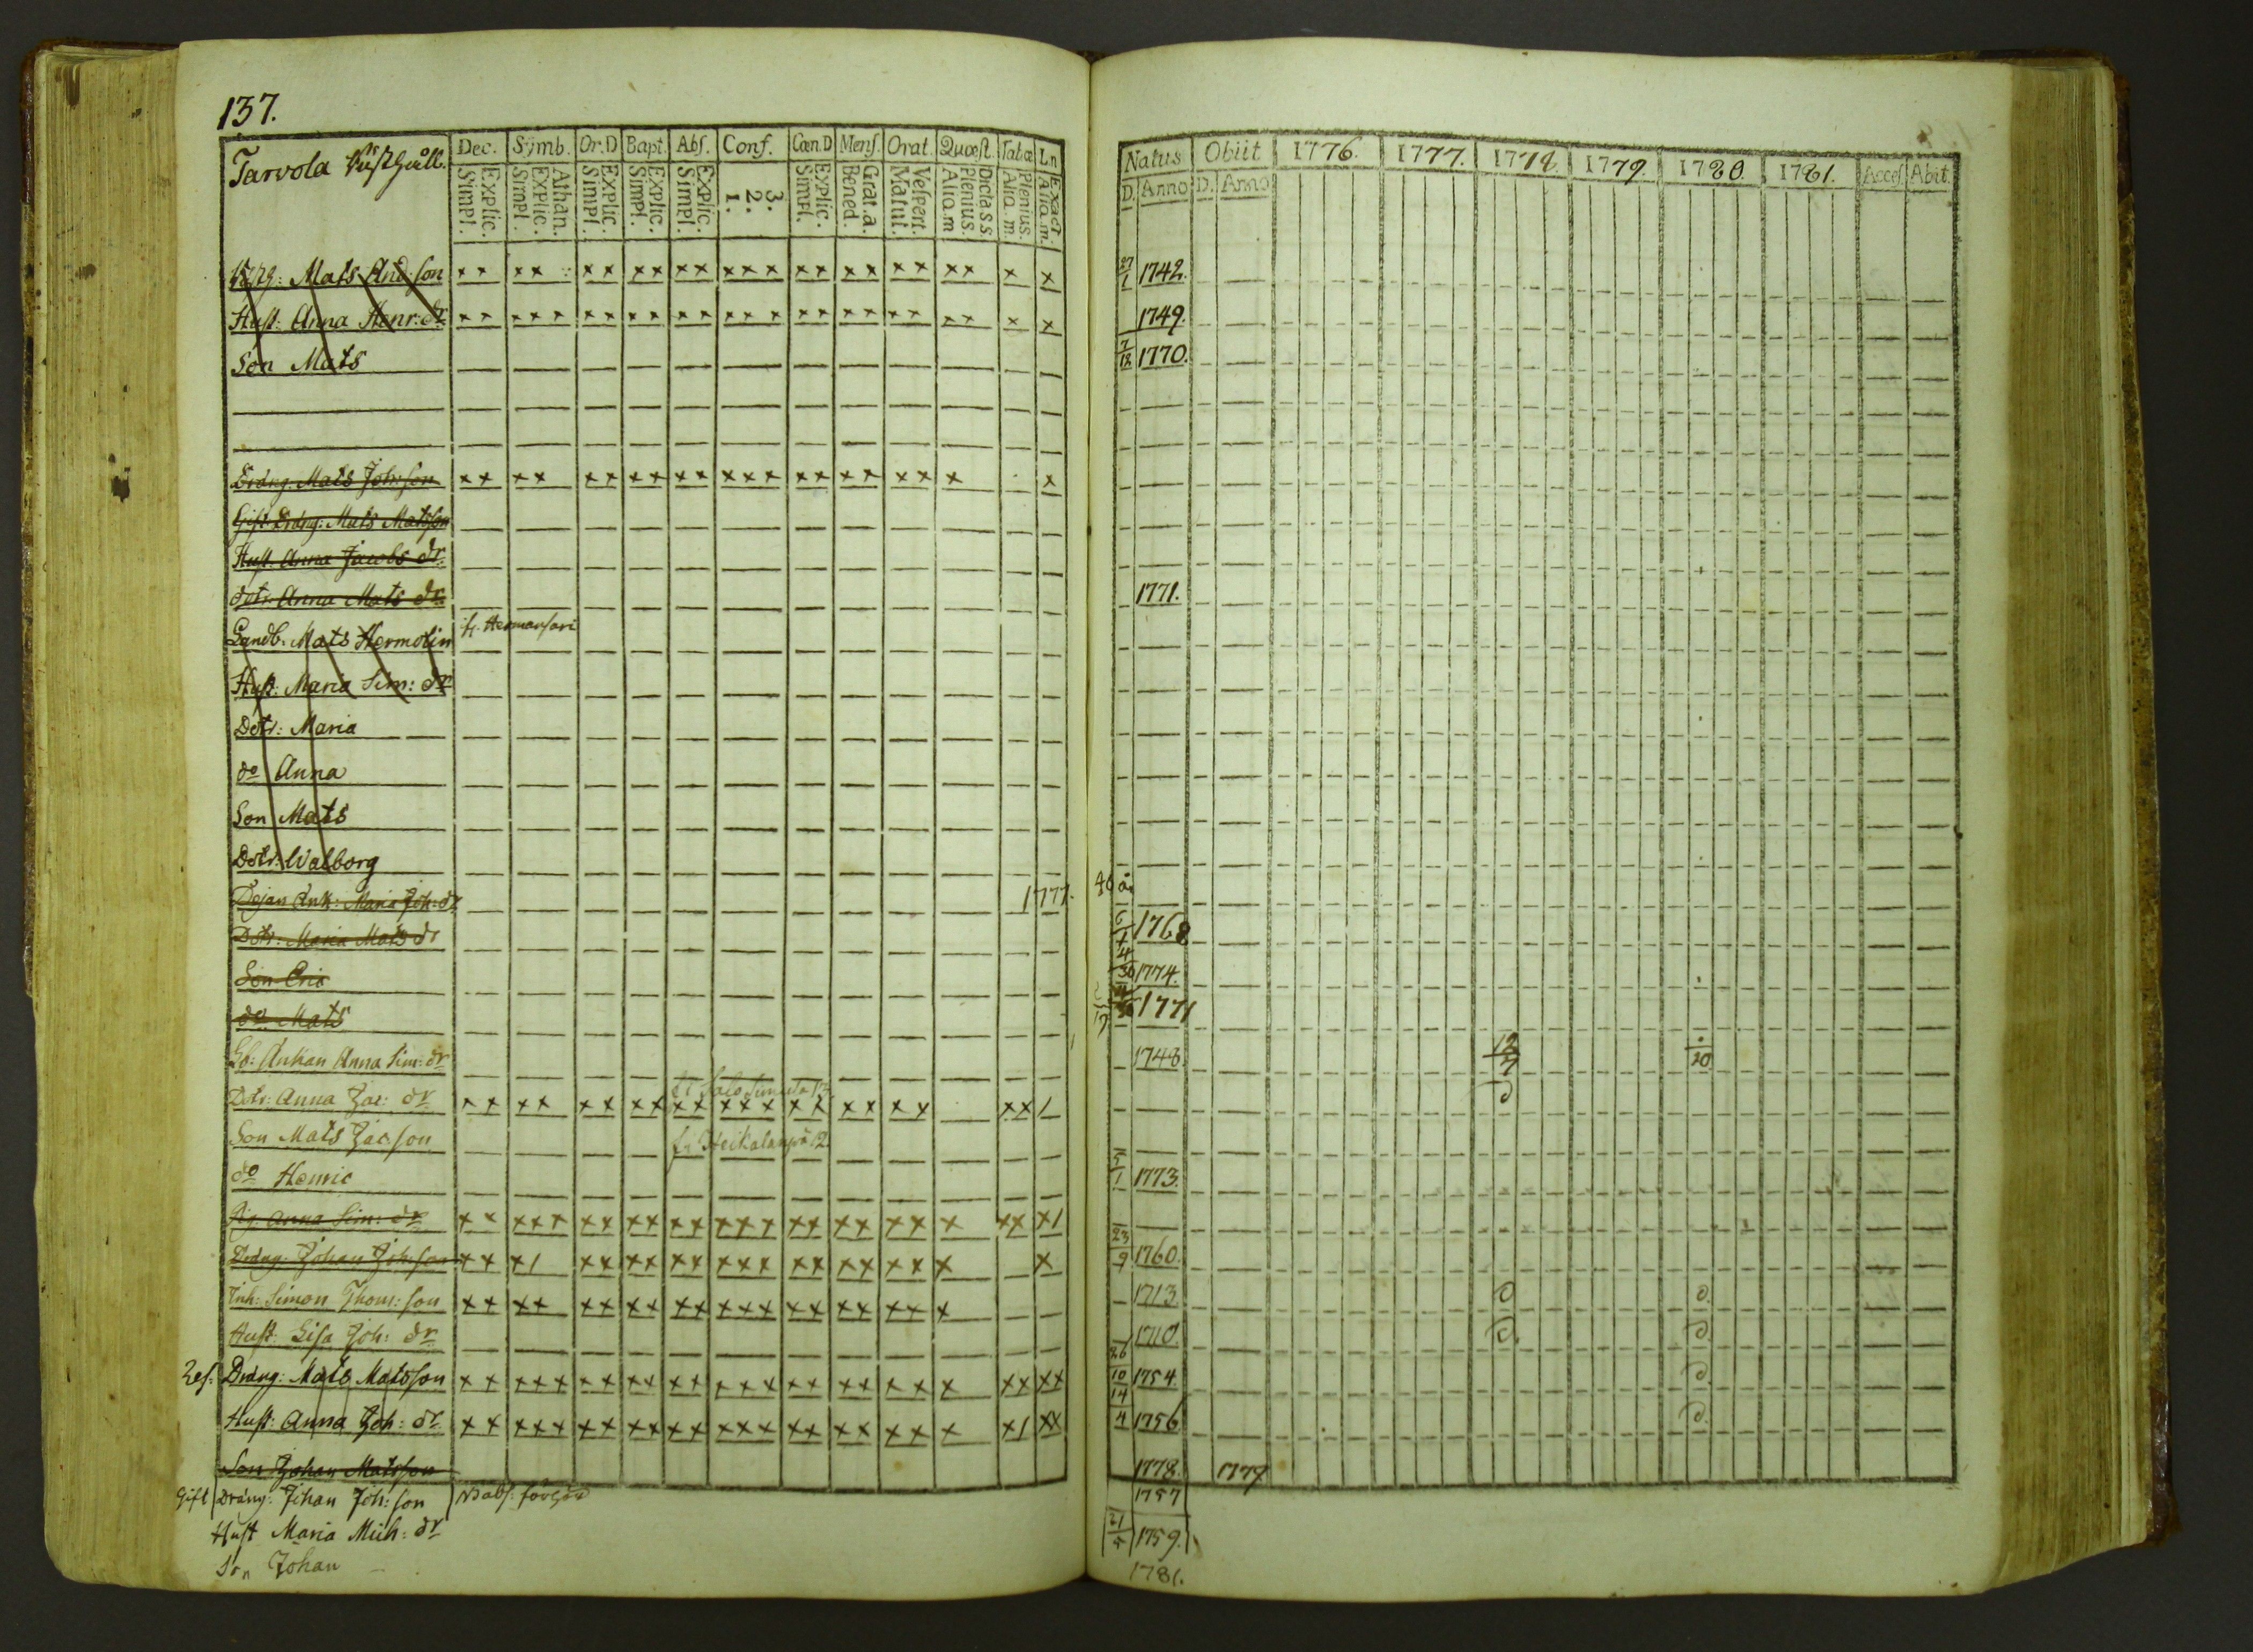 137.
Tarvola
Dec. Symb. Or.D Bapt. Abs. Conf. Cæn.D Mens. Orat. Quæst. Tabæ Ln
Explic. Simpl. Athan. Explic. Simpl. Explic. Simpl. Explic. Simpl. Explic. Simpl. 3. 2. 1. Explic. Simpl. Grat. a. Bened. Vespert. Matut. Dic. lass Plenius. Aliq. m Plenius. Aliq. m. Exact Aliq. m.
Natus Obiit 1776. 1777. 1778. 1779. 1780. 1781. Acces. Abit.
D. Anno D. Anno
Mats And:son 27/1 1742.
Hust: Anna Henr:dr 1749.
Son Mats 7/12 1770.
Dräng: Mats Joh:son
Gift Dräng: Mats Matsson
Hust: Anna Jacobs dr
dotr: Anna Mats dr 1771.
Landb: Mats Hermolin
Hust: Maria Sim: dr
Dotr: Maria
do Anna
Son Mats
Dotr: Walborg
Dejan Enk: Maria Joh:dr 1777. 46 år
Dotr: Maria Mats dr 6/1 1768
Son Eric 4/30 1774.
do Mats 1771
Anna Sim: dr 1748. 12/7 20
Dotr: Anna Jac: dr
Son Mats Jac:son
do Henric 5/1 1773.
Pig: Anna Sim: dr
Dräng: Johan Joh:son 23/9 1760.
Inh: Simon Thom:son 1713.
Hust: Lisa Joh: dr 1710.
Dräng: Mats Matsson 26/10 1754
Hust: Anna Joh: dr 14/4 1756
Son Johan Matsson 1778. 1779
Gift Dräng: Johan Joh:son 1757
Hust Maria Mich: dr 21/5 1759.
Son Johan 1781.